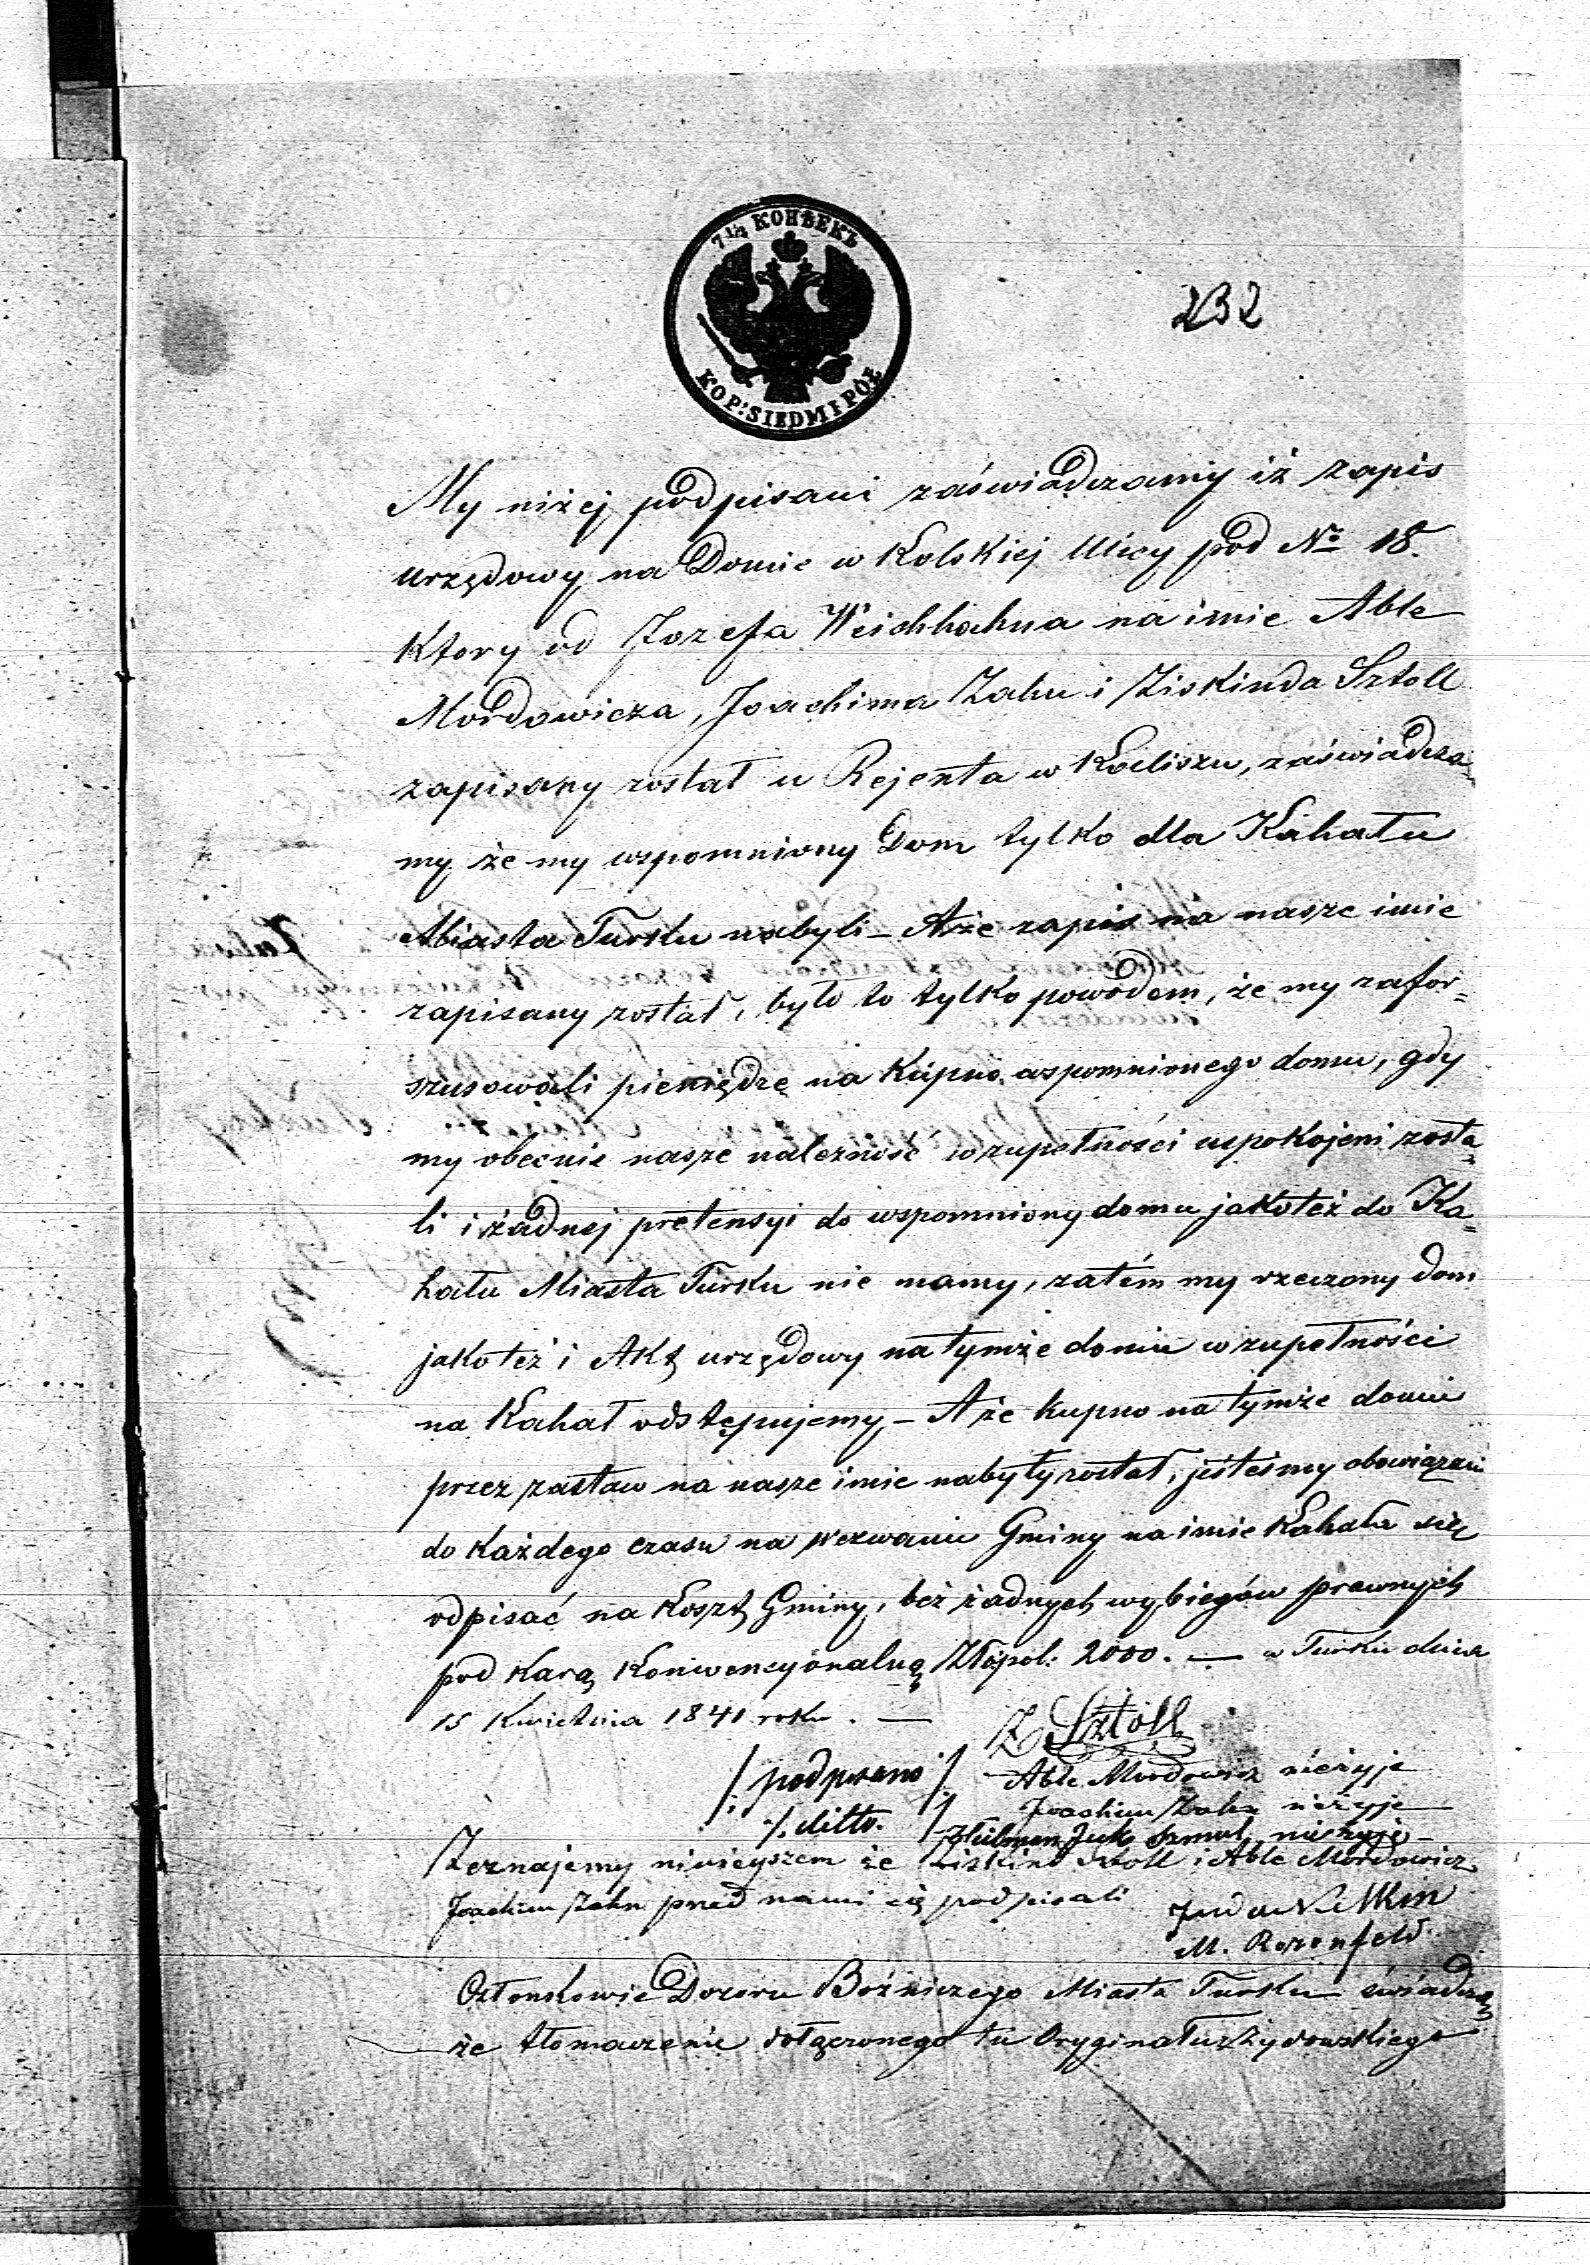 7½ КОПѢЕКЪ
KOP: SIEDM I PÓŁ
232
My niżej podpisani zaświadczamy iż zapis
urzędowy na Domie w Kolskiej Ulicy pod No 18.
Ktory od Jozefa Weichhahna na imie Able
Mordowicza, Joachima Zahn i Ziskinda Sztoll
zapisany został u Rejenta w Kaliszu, zaświadcza
my że my wspomniony Dom tylko dla Kahału
Miasta Turku nabyli – A że zapis na nasze imie
zapisany został, było to tylko powodem, że my zafor=
szusowali pieniędze na Kupno wspomnionego domu, gdy
my obecnie nasze należność w zupełności uspokojeni zosta
li i żadnej pretensyi do wspomniony domu jakoteż do Ka=
hału Miasta Turku nie mamy, zatém my rzeczony dom
jakoteż i Akt urzędowy na tymże domie w zupełności
na Kahał odstępujemy – A że kupno na tymże domie
przez zastaw na nasze imie nabyty został, jsteśmy obowiązani
do każdego czasu na wezwanie Gminy na imie Kahała się
odpisać na Koszt Gminy, bez żadnych wybiegów prawnych
pod Karą Konwencyonalną Złopol: 2000. — w Turku dnia
15 Kwietnia 1841 roku . —
Z Sztoll
/: podpisano :/ Able Mordowicz nieżyje
./. ditto. :/ Joachim Zahn nieżyje
Szmul nieżyje –
Zeznajemy niniejszem że Ziskind Sztoll i Able Mordowicz
Joachim Zahn przed nami się podpisali
M. Rozenfeld
Członkowie Dozoru Bóżniczego Miasta Turku świadczą
że tłomaczenie dołączonego tu Oryginału Żydowskiego